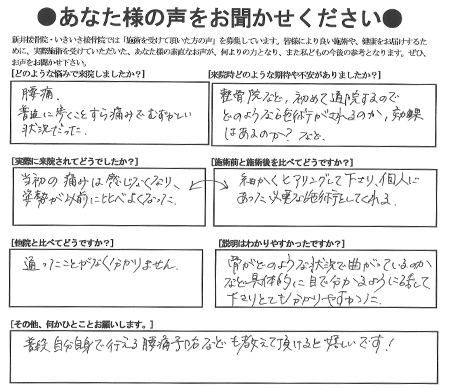 ●あなた様の声をお聞かせください●
新井接骨院・いきいき接骨院では「施術を受けて頂いた方の声」を募集しています。皆様により良い施術や、健康をお届けするために、実際施術を受けていただいた、あなた様の素直なお声が、何よりの力となり、また私どもの今後の参考となります。ぜひ、お声をお聞かせ下さい。
[どのような悩みで来院しましたか?]
腰痛。
普通に歩くことすら痛みでむずかしい
状況だった。
[来院時どのような期待や不安がありましたか?]
整骨院など、初めて通院するので
どのような施術がされるのか、効果
はあるのか? など。
[実際に来院されてどうでしたか?]
当初の痛みは感じなくなり、
姿勢が以前に比べよくなった。
[施術前と施術後を比べてどうですか?]
細かくヒアリングして下さり、個人に
あった必要な施術をしてくれる。
[他院と比べてどうですか?]
通ったことがなく分かりません。
[説明はわかりやすかったですか?]
骨がどのような状況で曲がっているのか
など具体的に目で分かるように示して
下さりとても分かりやすかった。
[その他、何かひとことお願いします。]
普段自分自身で行える腰痛予防なども教えて頂けると嬉しいです!